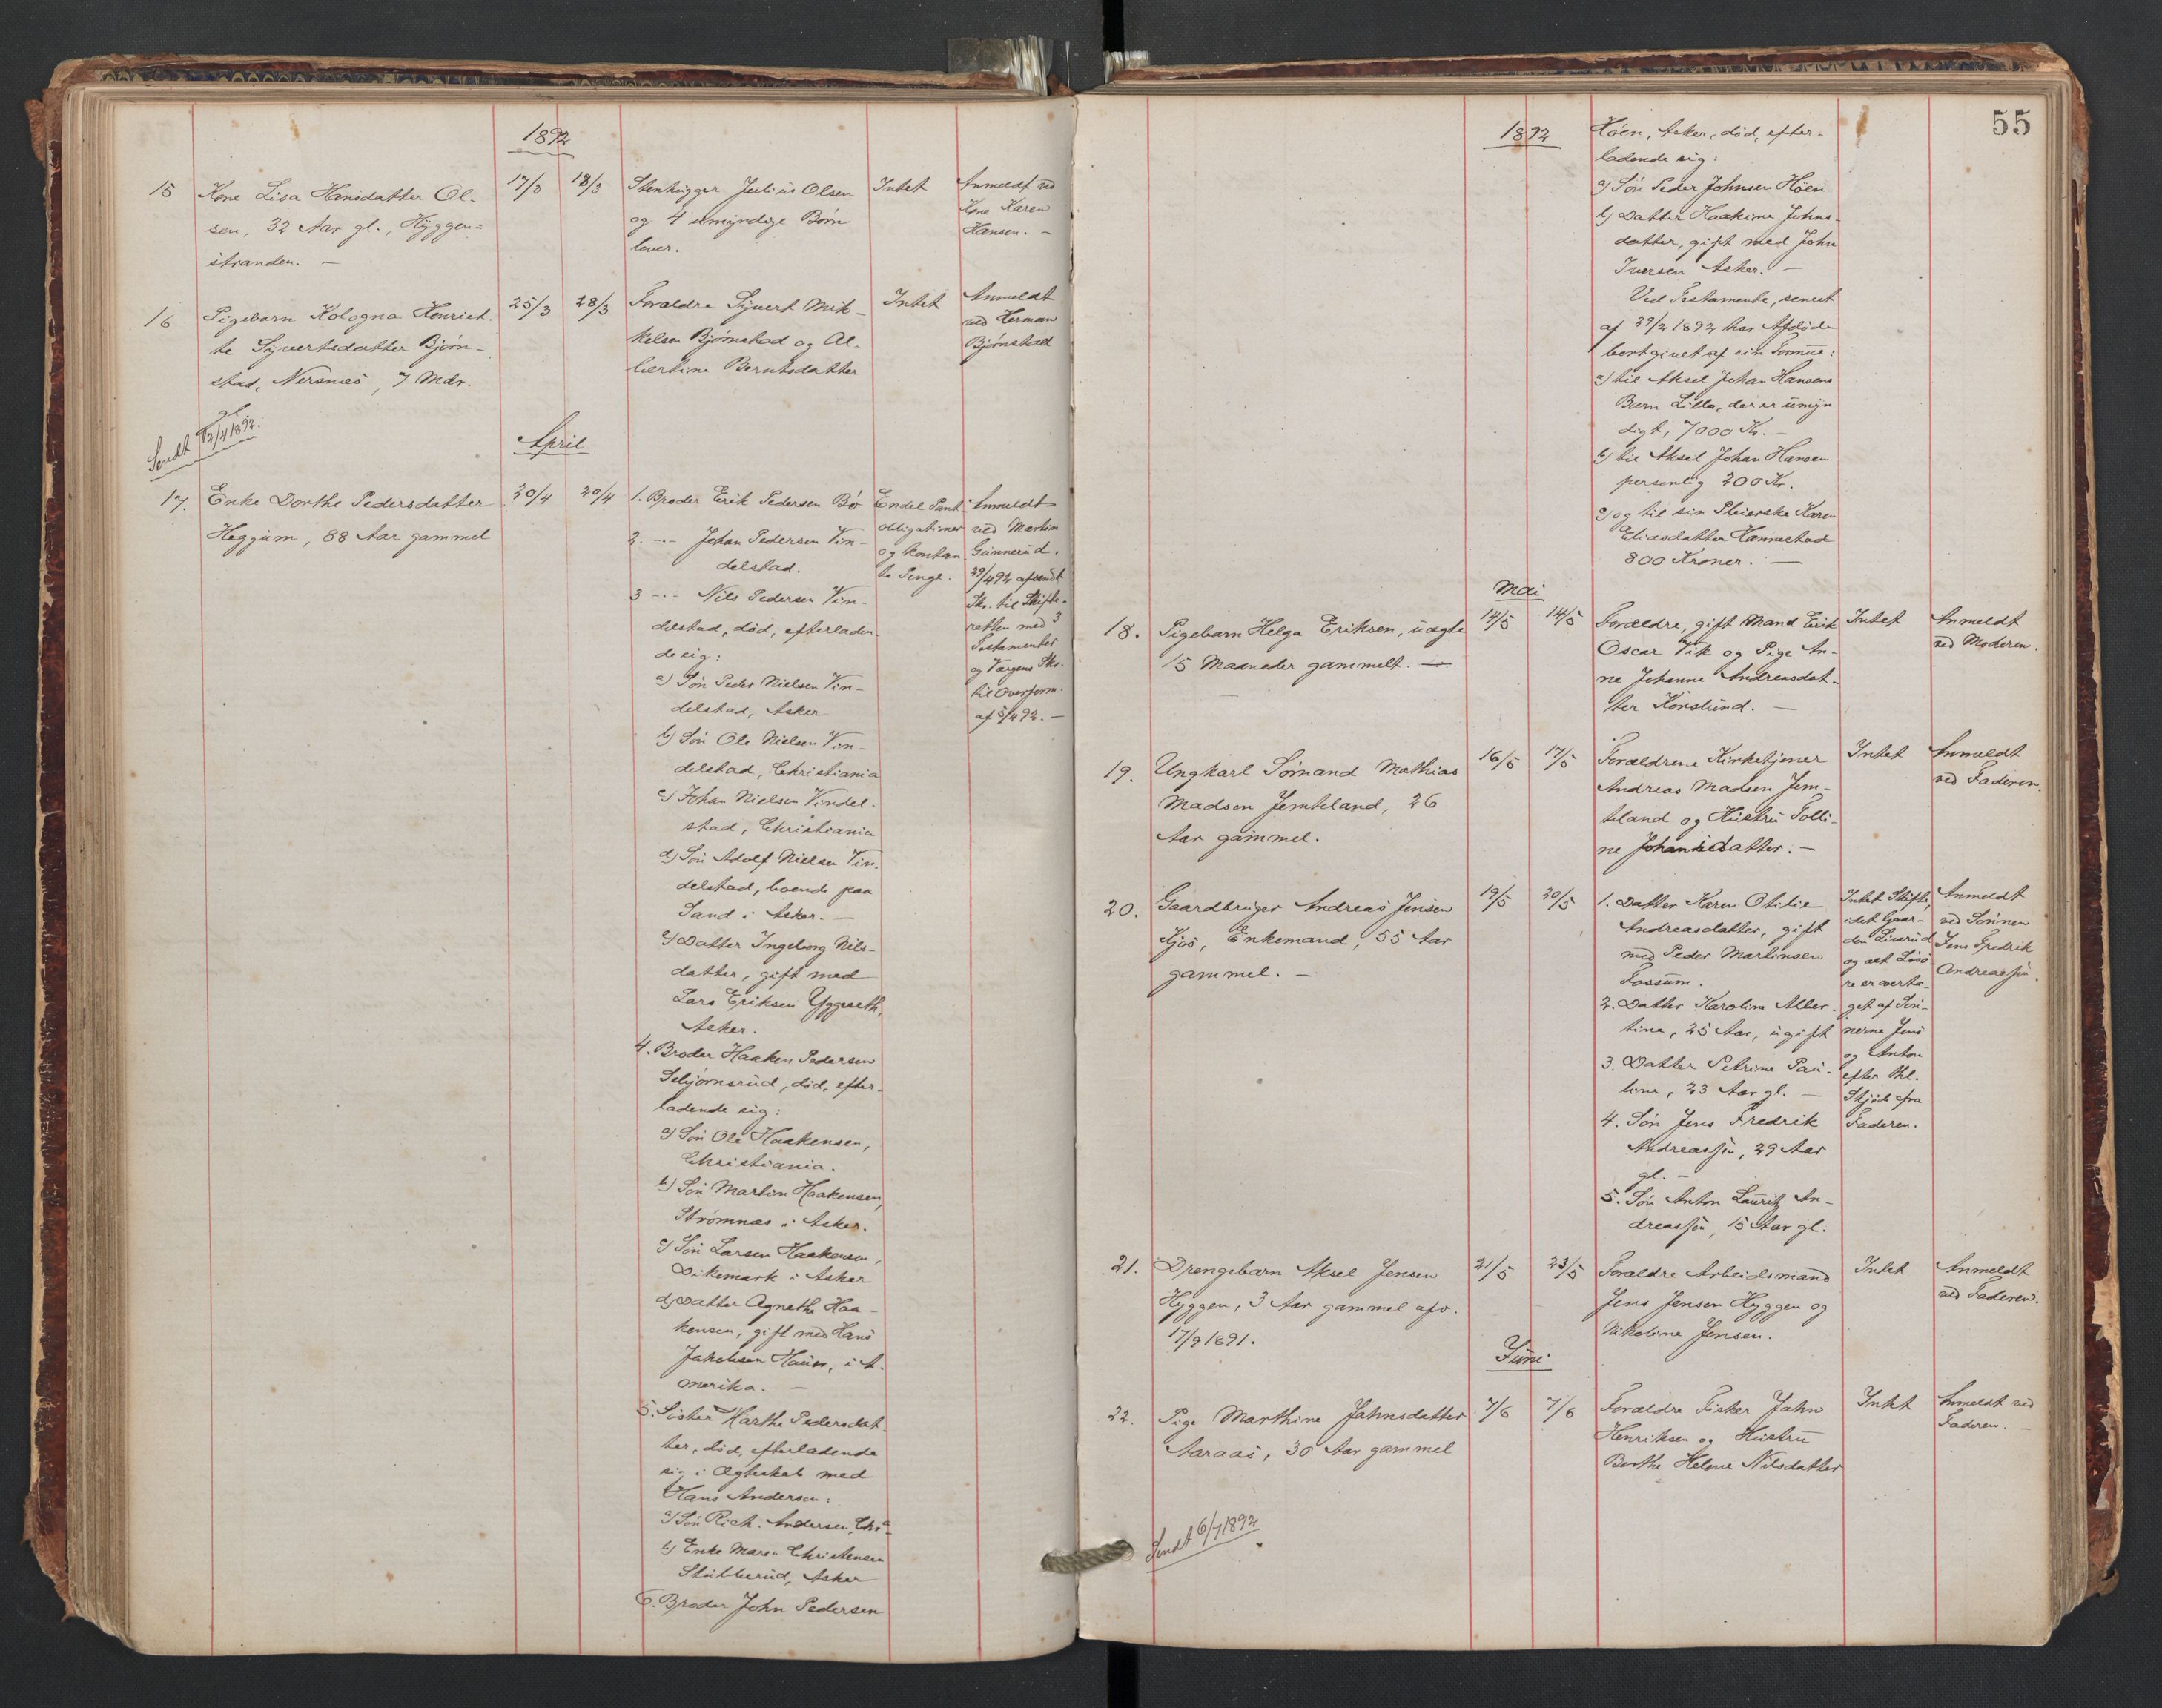 1892
15 Kone Lisa Hansdatter Ol-
sen, 32 Aar gl., Hyggen-
stranden. —
17/3 18/3
Stenhugger Julius Olsen
og 4 umyndige Børn
lever.
Intet
Anmeldt ved
Kone Karen
Hansen. —
16 Pigebarn Kologna Henriet-
te Syvertsdatter Bjørn-
stad, Nersnæs, 7 Mdr.
gl.
25/3 28/3
Forældre Syvert Mik-
kelsen Bjørnstad og Al-
bertine Berntsdatter
Intet
Anmeldt
ved Herman
Bjørnstad
Sendt 12/4 1892.
April
17. Enke Dorthe Pedersdatter
Heggum, 88 Aar gammel
20/4 20/4
1. Broder Erik Pedersen Bø
2. -"- Johan Pedersen Vin-
delstad.
3 -"- Nils Pedersen Vin-
delstad, død, efterladen-
de sig:
a) Søn Peder Nielsen Vin-
delstad, Asker
b) Søn Ole Nielsen Vin-
delstad, Christiania
c) Johan Nielsen Vindel-
stad, Christiania
d) Søn Adolf Nielsen Vin-
delstad, boende paa
Sand i Asker. —
e) Datter Ingeborg Nils-
datter, gift med
Lars Eriksen Yggeseth,
Asker.
4. Broder Haaken Pedersen
Sebjørnsrud, død, efter-
ladende sig:
a) Søn Ole Haakensen,
Christiania.
b) Søn Martin Haakensen,
Strømnæs i Asker.
c) Søn Larsen Haakensen,
Dikemark i Asker
d) Datter Agnethe Haa-
kensen, gift med Hans
Jakobsen Haun, i A-
merika. —
5. Søster Marthe Pedersdat-
ter, død, efterladende
sig i Ægteskab med
Hans Andersen:
a) Søn Rich. Andersen, Chr.a
b) Enke Maren Christensen
Stubberud, Asker
6. Broder John Pedersen
Endel Pant-
obligationer
og kontan-
te Penge.
Anmeldt
ved Martin
Gunnerud.
29/4 92 afsendt
Skr. til Skifte-
retten med 3
Testamenter
og Vargens Skr.
til Overform.
af 5/4 92. —
55
1892
Høen, Asker, død, efter-
ladende sig:
a) Søn Peder Johnsen Høen
b) Datter Haakine Johns-
datter, gift med John
Iversen Asker. —
Ved Testamente, senest
af 29/2 1892 har Afdøde
bortgivet af sin Formue:
a) til Aksel Johan Hansens
Barn Lilla, der er umyn
digt, 7000 Kr. —
b) til Aksel Johan Hansen
personlig 200 Kr.
c) og til sin Pleierske Karen
Eliasdatter Hannestad
800 Kroner. —
Mai
18. Pigebarn Helga Eriksen, uægte
15 Maaneder gammelt. —
14/5 14/5
Forældre, gift Mand Erik
Oscar Vik og Pige An-
ne Johanne Andreasdat-
ter Korslund. —
Intet
Anmeldt
ved Moderen.
19. Ungkarl Sørnand Mathias
Madsen Jemteland, 26
Aar gammel.
16/5 17/5
Forældrene Kirketjener
Andreas Madsen Jem-
teland og Hustru Tolli-
ne Johannesdatter. —
Intet
Anmeldt
ved Faderen.
20. Gaardbruger Andreas Jensen
Kjos, Enkemand, 55 Aar
gammel. —
19/5 20/5
1. Datter Karen Otilie
Andreasdatter, gift
med Peder Martinsen
Fossum.
2. Datter Karoline Alber-
tine, 25 Aar, ugift
3. Datter Petrine Pau-
line, 23 Aar gl. —
4. Søn Jens Fredrik
Andreassen, 29 Aar
gl. —
5. Søn Anton Lauritz An-
dreassen, 15 Aar gl.
Intet Skifte,
idet Gaar-
den
og alt Løsø-
re er overta-
get af Søn-
nerne Jens
og Anton
efter thl.
Skjøde fra
Faderen.
Anmeldt
ved Sønnen
Jens Fredrik
Andreassen.
21. Drengebarn Aksel Jensen
Hyggen, 3 Aar gammel
17/9 1891.
21/5 23/5
Forældre Arbeidsmand
Jens Jensen Hyggen og
Nikoline Jensen.
Intet
Anmeldt
ved Faderen.
Juni
22. Pige Marthine Jahnsdatter
Aaraas, 30 Aar gammel
7/6 7/6
Forældre Fisker Jahn
Henriksen og Hustru
Berthe Helene Nilsdatter
Intet
Anmeldt ved
Faderen. —
Sendt 6/7 1892